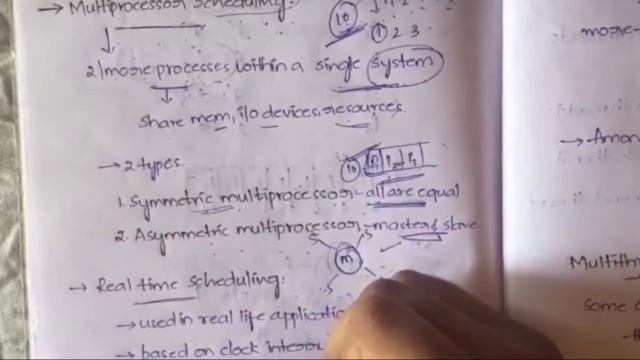 → Multiprocessor Scheduling:
10 1 2
1 2 3
2/more processes within a single system
share mem, i/o devices, resources.
→ 2 types
10 P1 P2 P3
1. Symmetric multiprocessor - all are equal
2. Asymmetric multiprocessor - master & slave
S S
m
S
→ Real time scheduling:
→ used in real life
→ based on clock
more-
→ Amon
Multith
Some